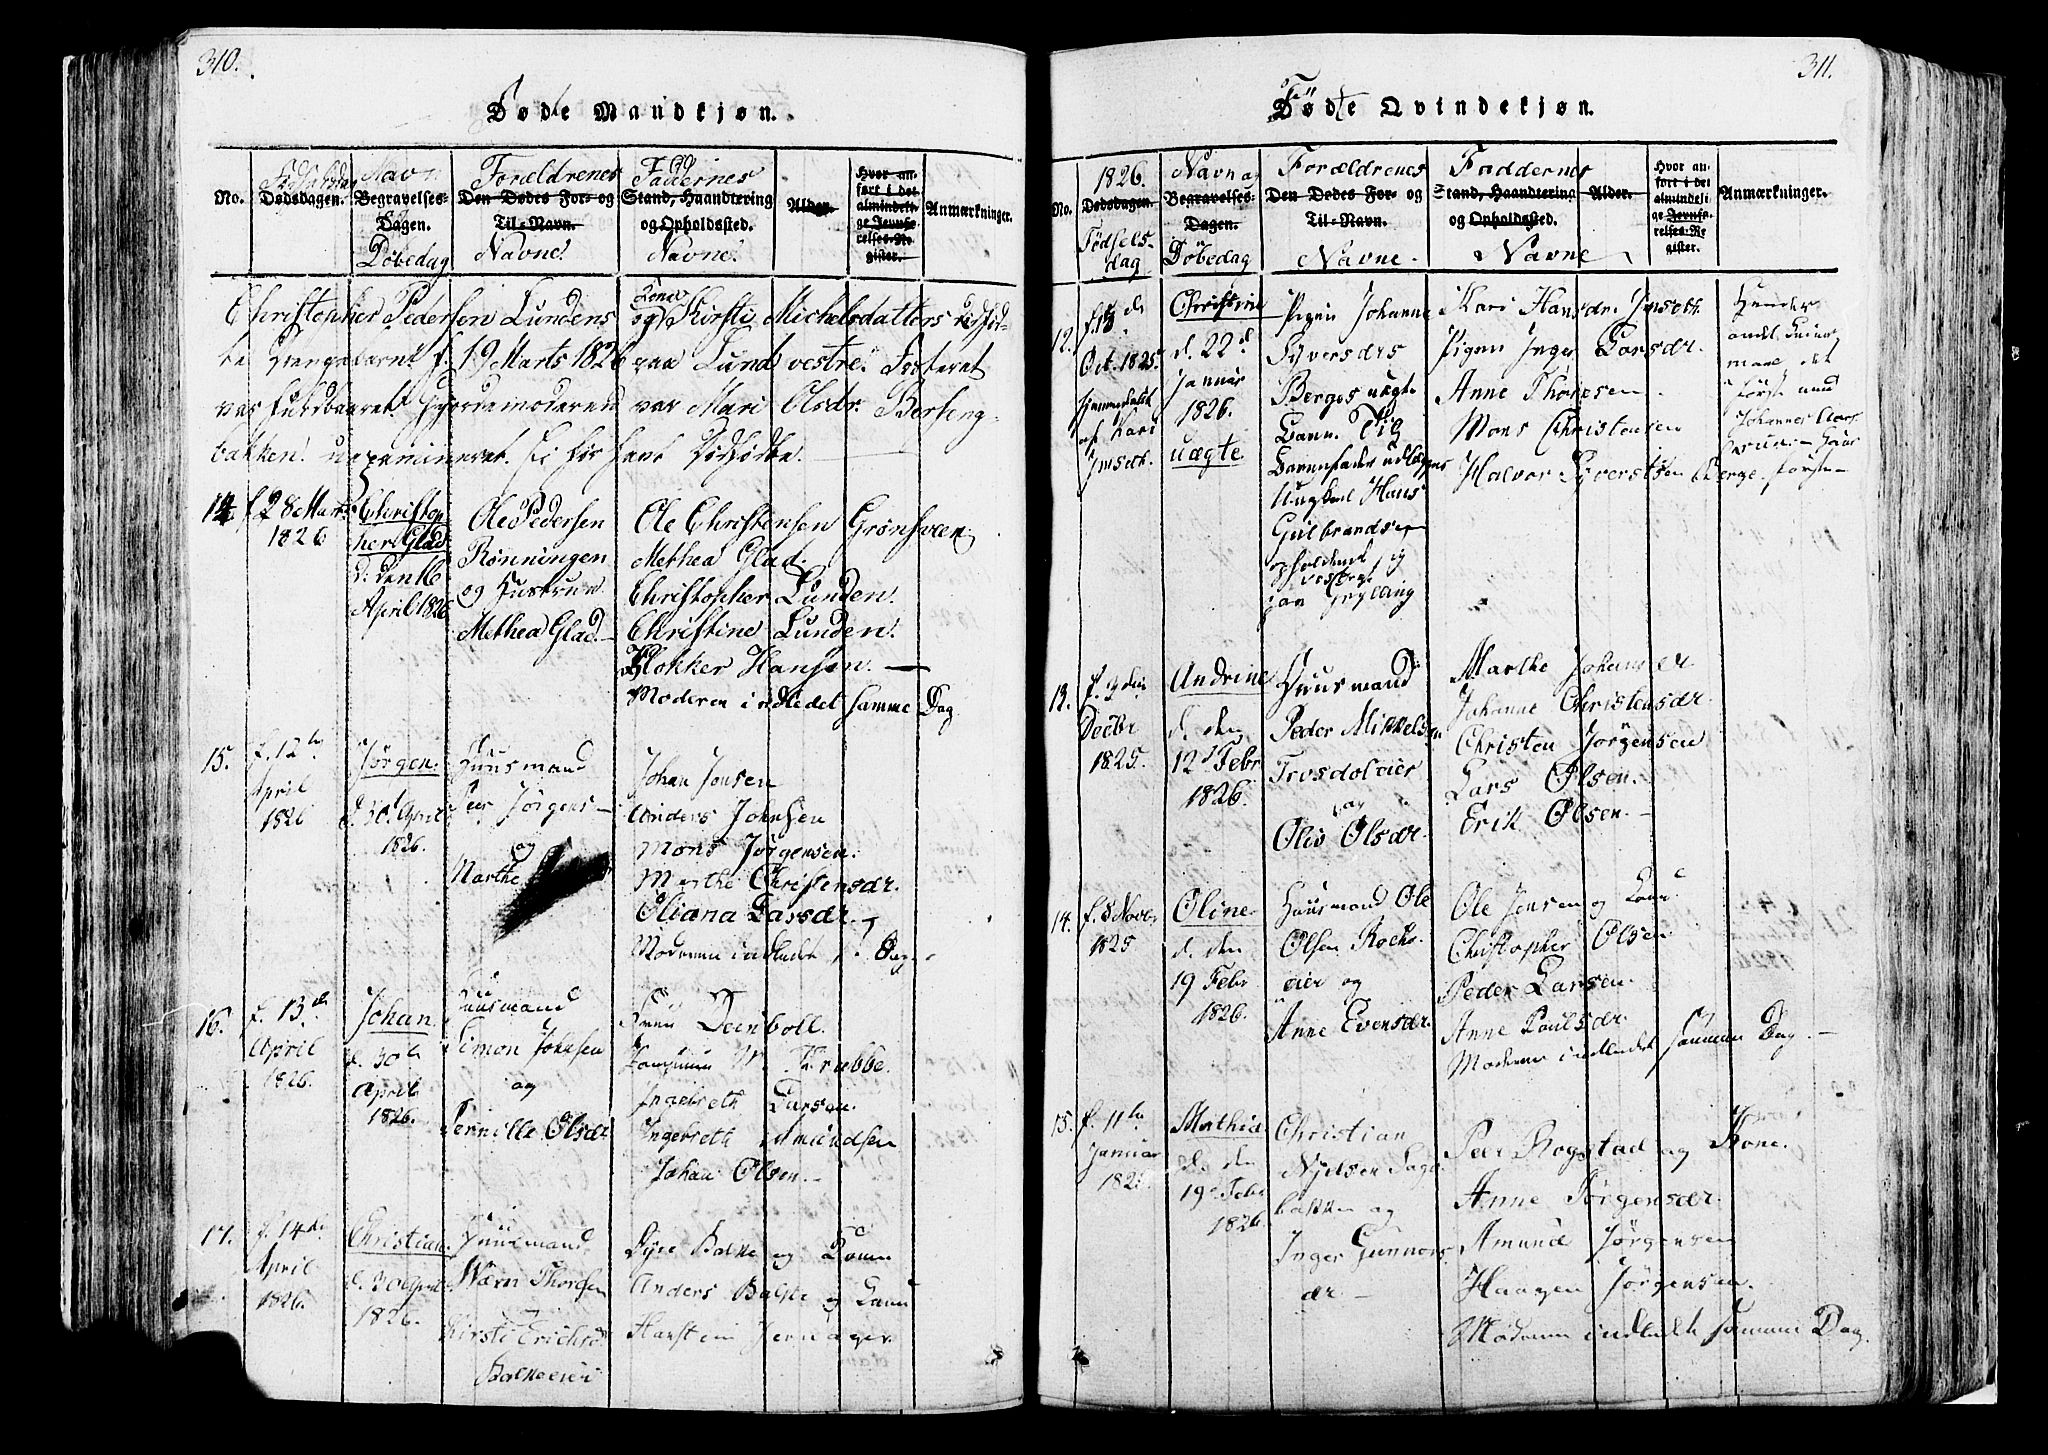 310.
Døde Mandkjøn.
No.
Dødsdagen.
Navn
Begravelses-
Dagen.
Døbedag
Forældrenes
Den Dødes For- og
Til-Navn.
Navne.
Faddernes
Stand, Haandtering
og Opholdssted.
Navne.
Alder.
Hvor an-
ført i det
almindeli-
ge Jevnfø-
relses-Re-
gister.
Anmærkninger.
Christopher Pedersen Lundens og Kone Kirsti Michelsdatters dødfød-
te Drengebarn f. 19 Marts 1826 paa Lund vestre. Fosteret
var fuldbaaret. Gjordemoderen var Mari Olsdr. Berseng-
bakken uexamineret.
14.
f. 28 Marts
1826
Christop
her Glad
d. den 16
April 1826
Ole Pedersen
Rønningen
og Hustrue
Methea Glad
Ole Christensen Grønsveen
Methea Glad.
Christopher Lunden.
Christine Lunden.
Klokker Hansen.
Moderen indledet samme Dag
15.
f. 12te
April
1826
Jørgen.
d. 30. April
1826.
Huusmand
Peer Jørgens-
og
Marthe
Johan Jensen
Anders Johnsen
Mons Jørgensen.
Marthe Christensdr.
Oliana Larsdr.
Moderen indledet s. Dag.
16.
f. 13de
April
1826.
Johan.
d. 30te
April
1826.
Huusmand
Simon Johnsen
og
Pernille Olsdr
Fru Deinboll.
Jomfrue M. Krabbe.
Ingebreth Larsen
Ingebreth Amundsen
Johan Olsen.
17.
f. 14de
April
1826.
Christian.
d. 30 April
1826.
Huusmand
Wærn Thorsen
Kirsti Erichsd
Balkeeiet
Dyre Balke og Kone
Anders Balke og Kone
311.
Fødte Qvindekjøn.
No.
1826.
Dødsdagen.
Fødsels-
dag
Navn og
Begravelses-
Dagen.
Døbedag
Forældrenes
Den Dødes For- og
Til-Navn.
Navne.
Faddernes
Stand, Haandtering
og Opholdssted.
Navne
Alder.
Hvor an-
ført i det
almindeli-
ge Jevnfø-
relses-Re-
gister.
Anmærkninger.
12.
f. 13 d
Oct. 1825.
hjemmedøbt
af Kari
Imseth.
Christine
d. 22d
Januar
1826.
uægte
Pigen Johanne
Syversdrs
Berges uægte
Barn.
Barnefader udlægges
Ungkarl Hans
Gulbrandsen
opholdende sig
paa Grylling
Kari Hansdr. Imseth
Pigen Inger Larsdr.
Anne Thoresen
Mons Christensen
Halvor Syvertsen Berge
13.
f. 9 den
Decbr
1825.
Andrine
d. den
12d Febr
1826.
Huusmand
Peder Mikkelsen
Trosdoleier
og
Oliv Olsdr.
Marthe Johansdr
Johanne Christensdr.
Christen Jørgensen
Lars Olsen.
Erik Olsen.
14.
f. 8 Novbr
1825
Oline
d. den
19 Febr
1826.
Huusmand Ole
Olsen Rochs
eier og
Anne Evensdr.
Ole Jensen og Kone
Christopher Olsen
Peder Larsen.
Anne Paulsdr.
Moderen indledet samme Dag.
15.
f. 11te
Januar
182
Mathia
d. den
19d Febr
1826.
Christian
Njelsen Sage
bakken og
Inger Gunnars
dr.
Peer Rogstad og Kone.
Anne Jørgensdr.
Amund Jørgensen
Haagen Jørgensen.
Moderen indledt samme Dag.